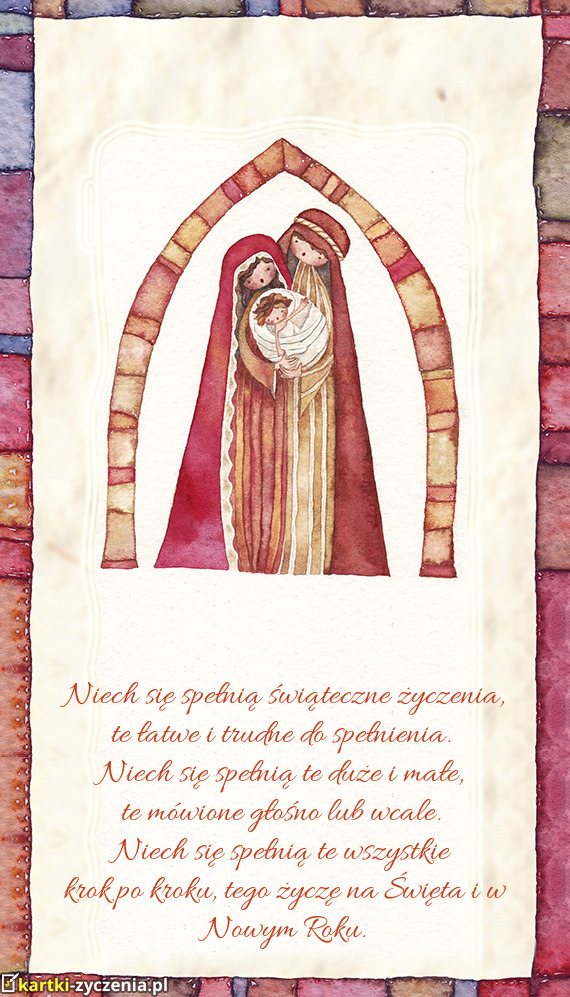 Niech się spełnią świąteczne życzenia,
te łatwe i trudne do spełnienia.
Niech się spełnią te duże i małe,
te mówione głośno lub wcale.
Niech się spełnią te wszystkie
krok po kroku, tego życzę na Święta i w
Nowym Roku.
kartki-zyczenia.pl